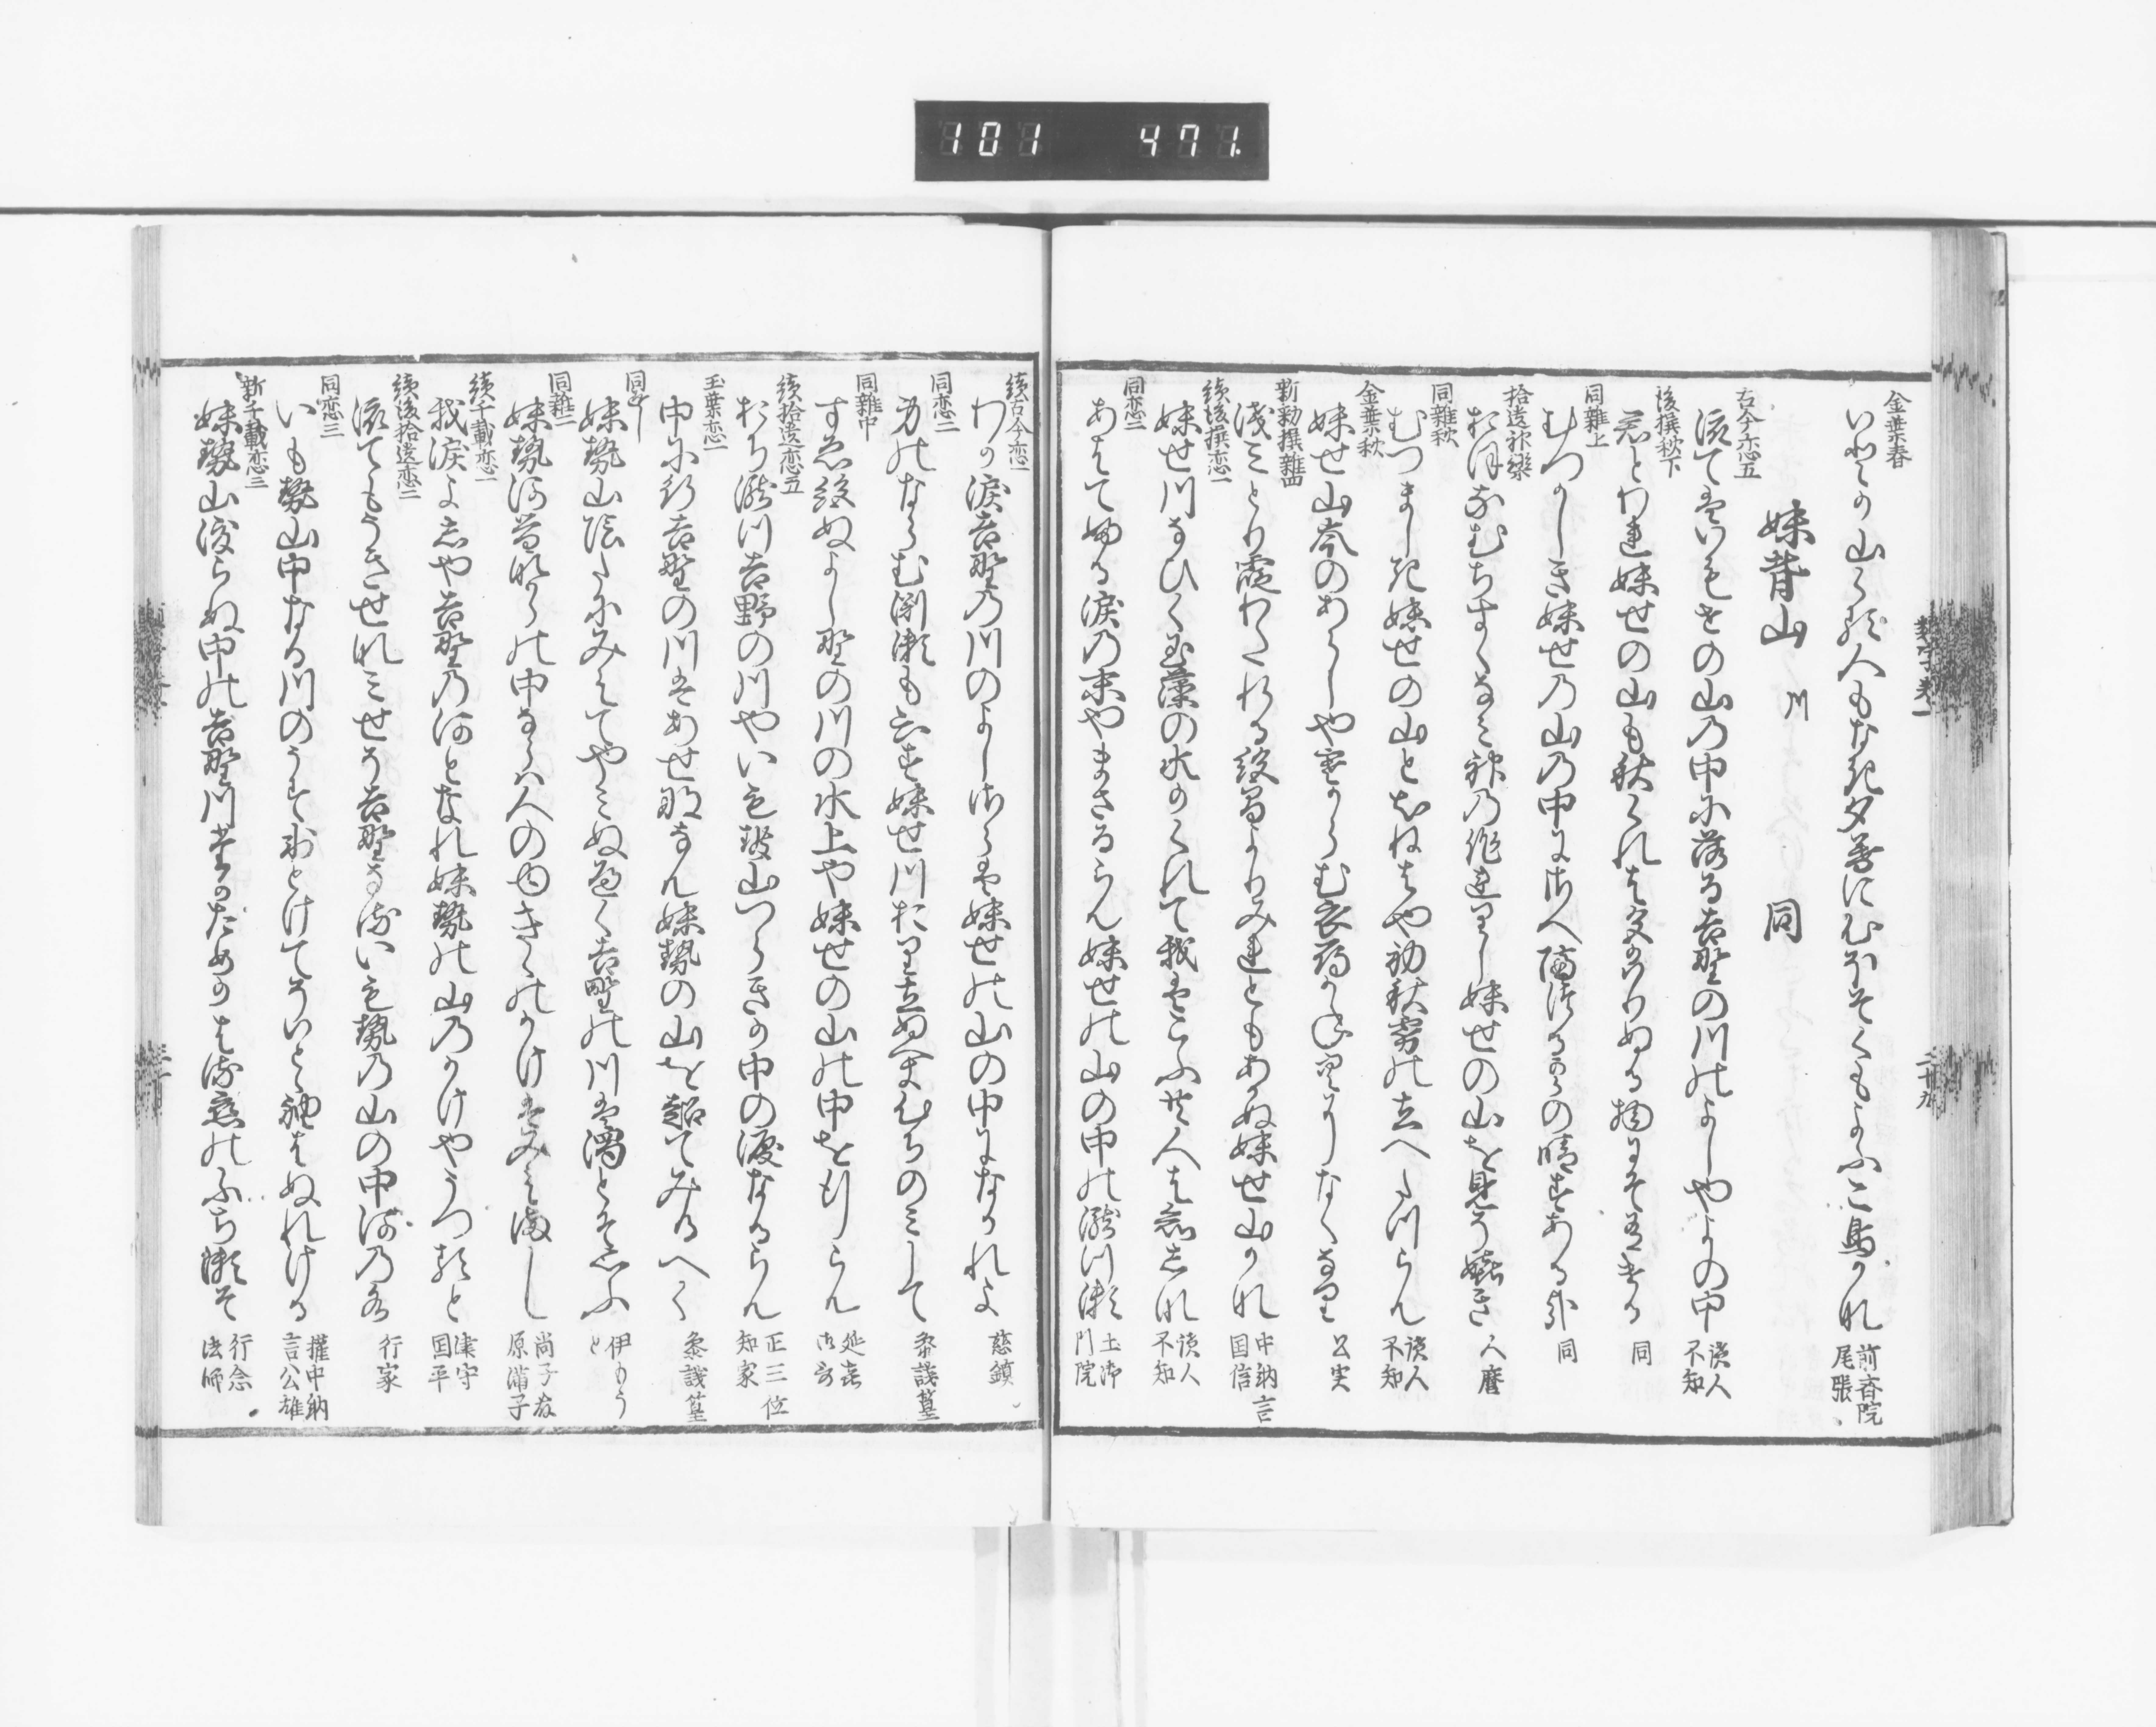 101 471.
金葉春
いとか山くる人もなき夕暮に心ほそくもよふこ鳥かな 前斎院尾張
妹背山 川 同
古今恋五
流てはいもせの山の中に落る吉野の川のよしやよの中 読人不知
後撰秋下
君とわれ妹せの山も秋くれは色かはりぬる物にそ有ける 同
同雑上
むつましき妹せの山の中にさへ隔つる雲の晴すあるかな 同
拾遺神樂
おほなむちすくなみ神の作れりし妹せの山を見るそ嬉き 人麿
同雜秋
むつましき妹せの山としらねはや初秋霧の立へたつらん 読人不知
金葉秋
妹せ山峯のあらしや寒からむ衣かりかね空になくなり 公実
新勅撰雜四
浅みとり霞わたれる絶まよりみれともあかぬ妹せ山かな 中納言国信
続後撰恋一
妹せ川なひく玉藻の水かくれて我はこふ共人はしらしな 読人不知
同恋二
あはて ふる涙の末やまさるらん妹せの山の中の瀧川瀬 土御門院
続古今恋一
わか涙吉野の川のよしさらは妹せの山の中になかれよ 慈鎮
同恋二
身のならむ渕瀬もしらす妹世川おり立ぬへき心ちのみして 参議篁
同雜中
すゑ絶ぬよしの野の川の水上や妹世の山の中を行らん 延喜御哥
続拾遺恋五
おちたきつ瀧川吉野の川やいもせ山つらきか中の涙なるらん 正三位知家
玉葉恋一
中に行吉野の川はあせななん妹勢の山を越てみるへく 参議篁
同
妹勢山陰たにみえてやみぬへく吉野の川は濁とそ思ふ 伊もうと
同雜一
妹勢河昔なからの中ならは人の行きの かけはみえまし 尚子藤原滿子
続千載恋一
我涙よしや吉野の河となれ妹勢の山のかけやうつると 津守国平
続後拾遺恋三
流てもうきせなみせそ吉野なるいも勢の山の中河の水 行家
同恋三
いも勢山中なる川のうす氷とけてそいとゝ袖はぬれける 權中納言公雄
新千載恋三
妹勢山渡らぬ中の吉野川たかためか は深恋のふち瀬そ 行念法師